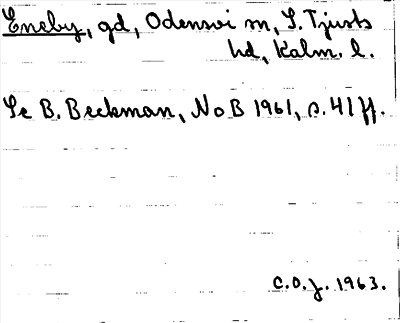 Eneby, gd, Odensvi sn, S. Tjusts
hd, Kalm. l.
Se B. Beckman, NoB 1961, s. 41 ff.
C.O.J. 1963.